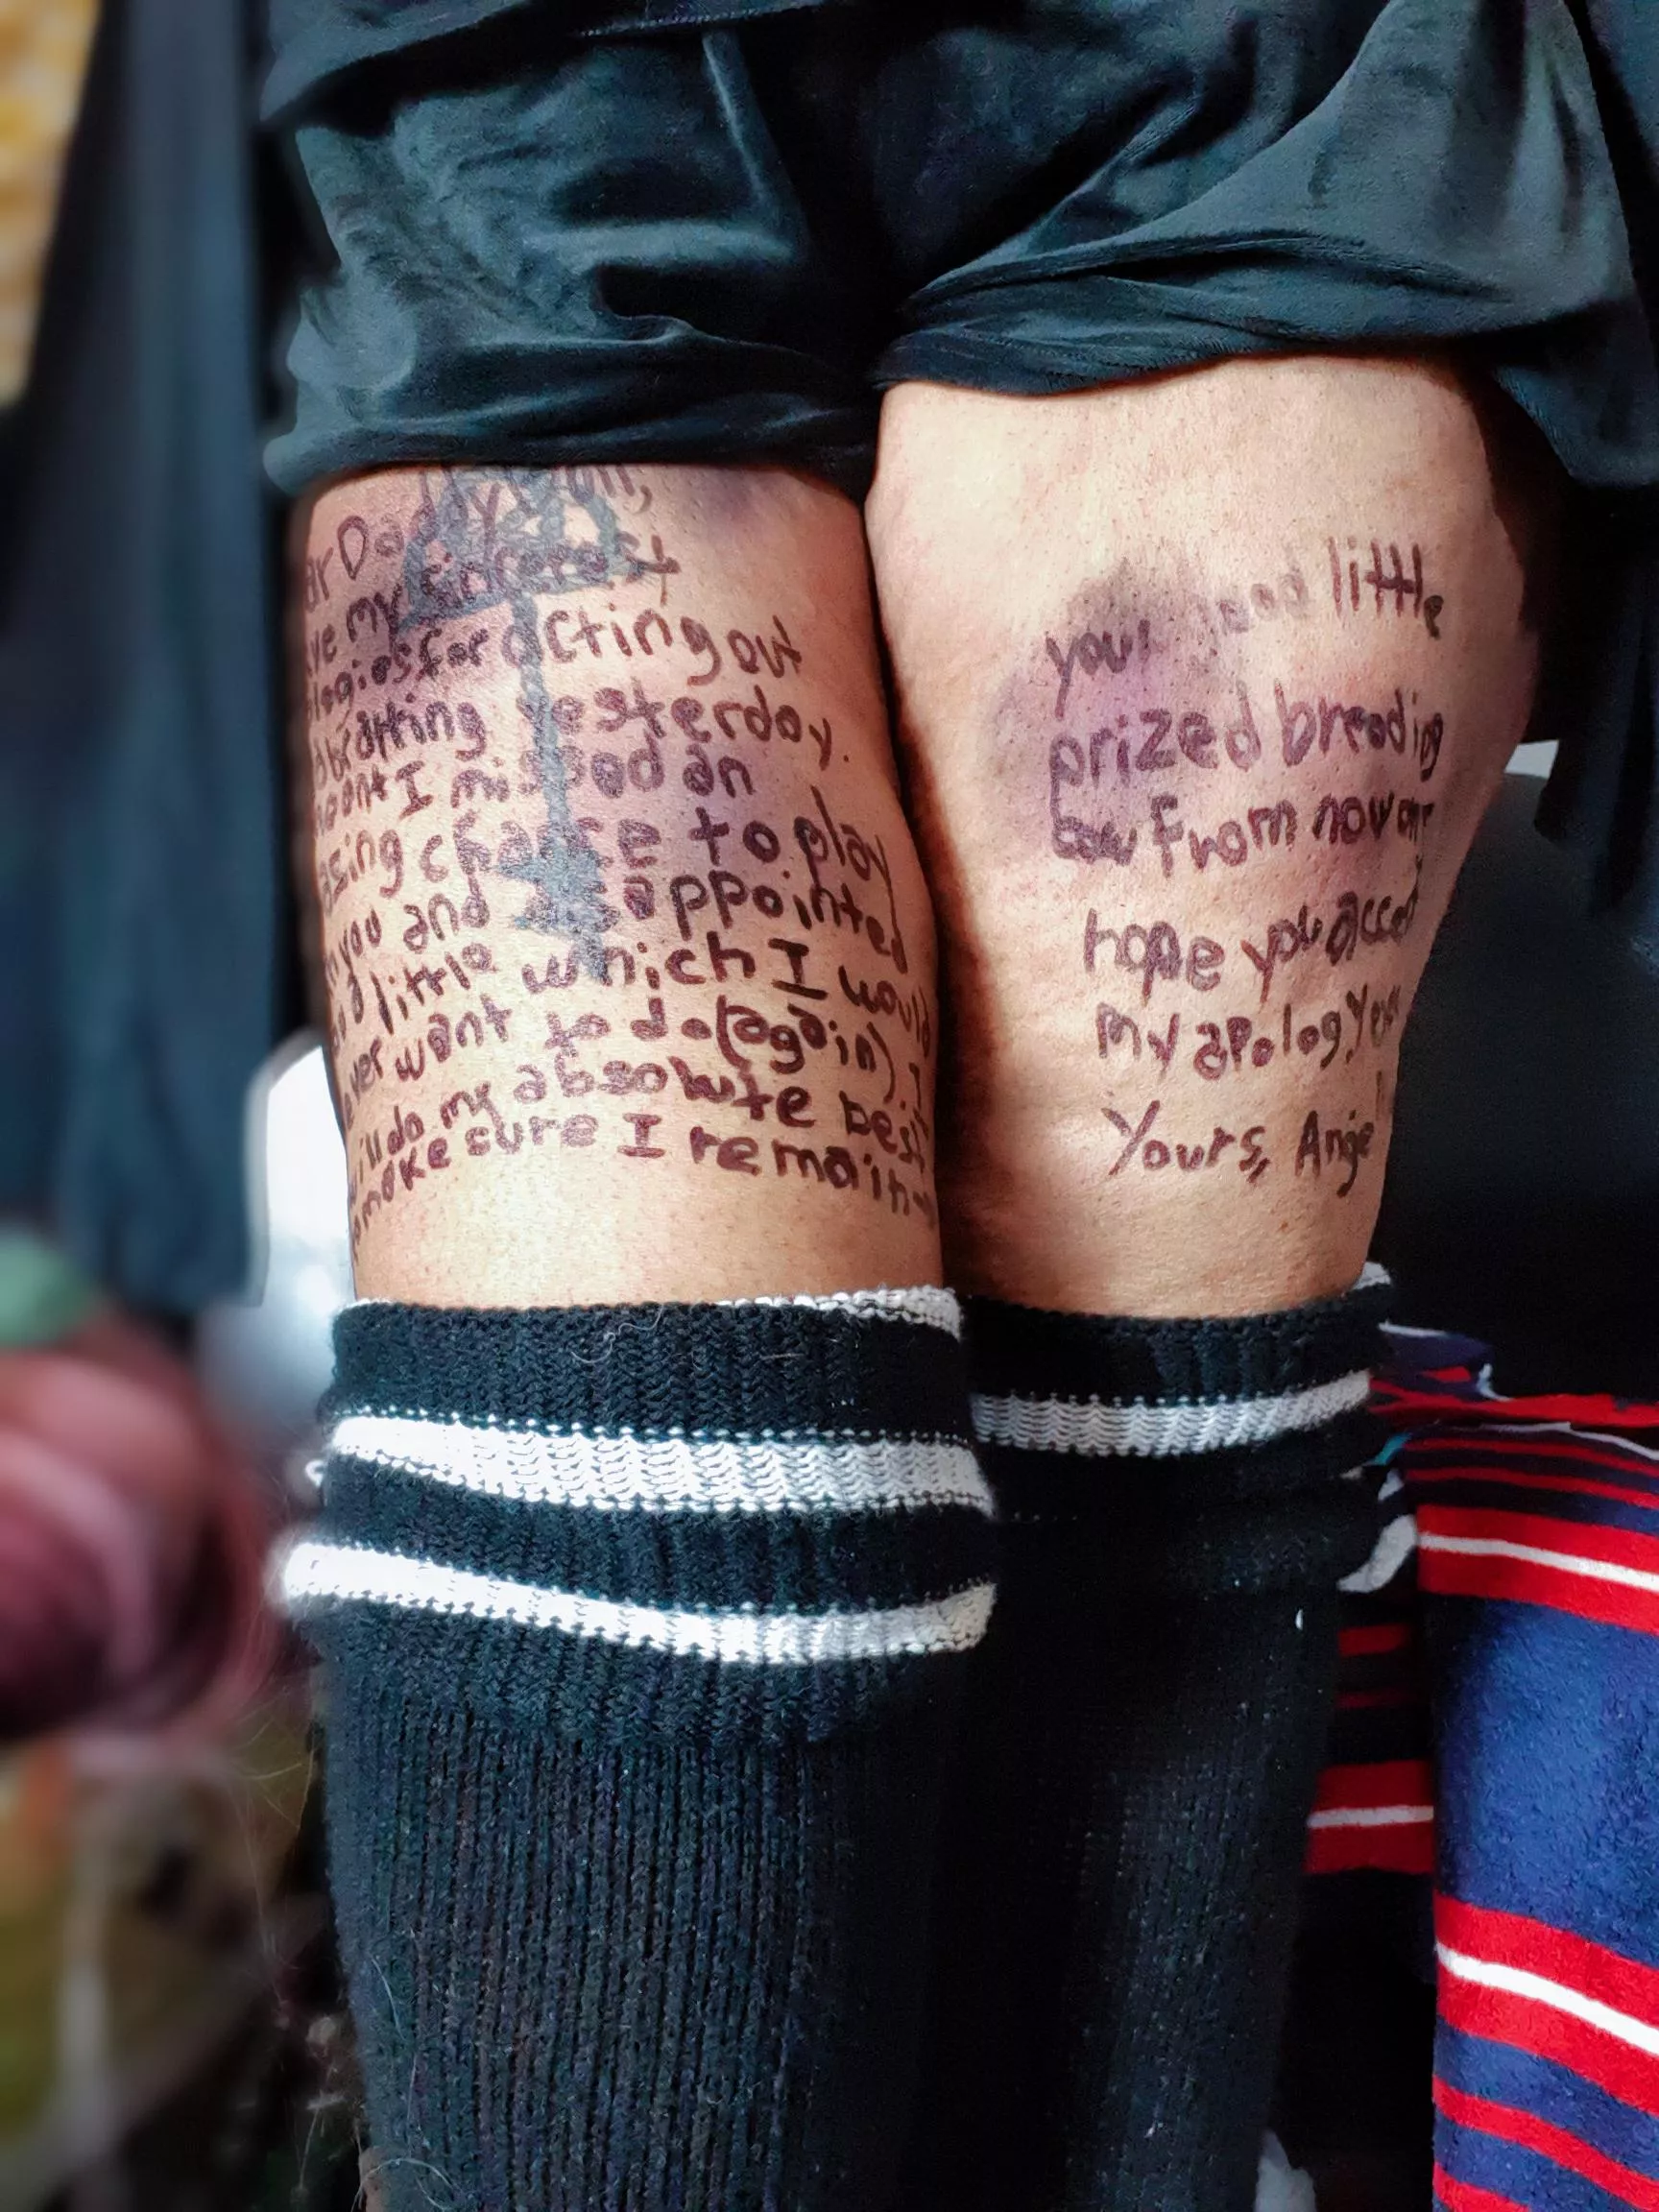 Daddy
my sincerest
for acting out
bratting yesterday.
I missed an
chance to play
you and disappointed
little which I would
want to do (again). I
do my absolute best
make sure I remain
your good little
prized breeding
cow from now on
hope you accept
my apology
Yours, Ange